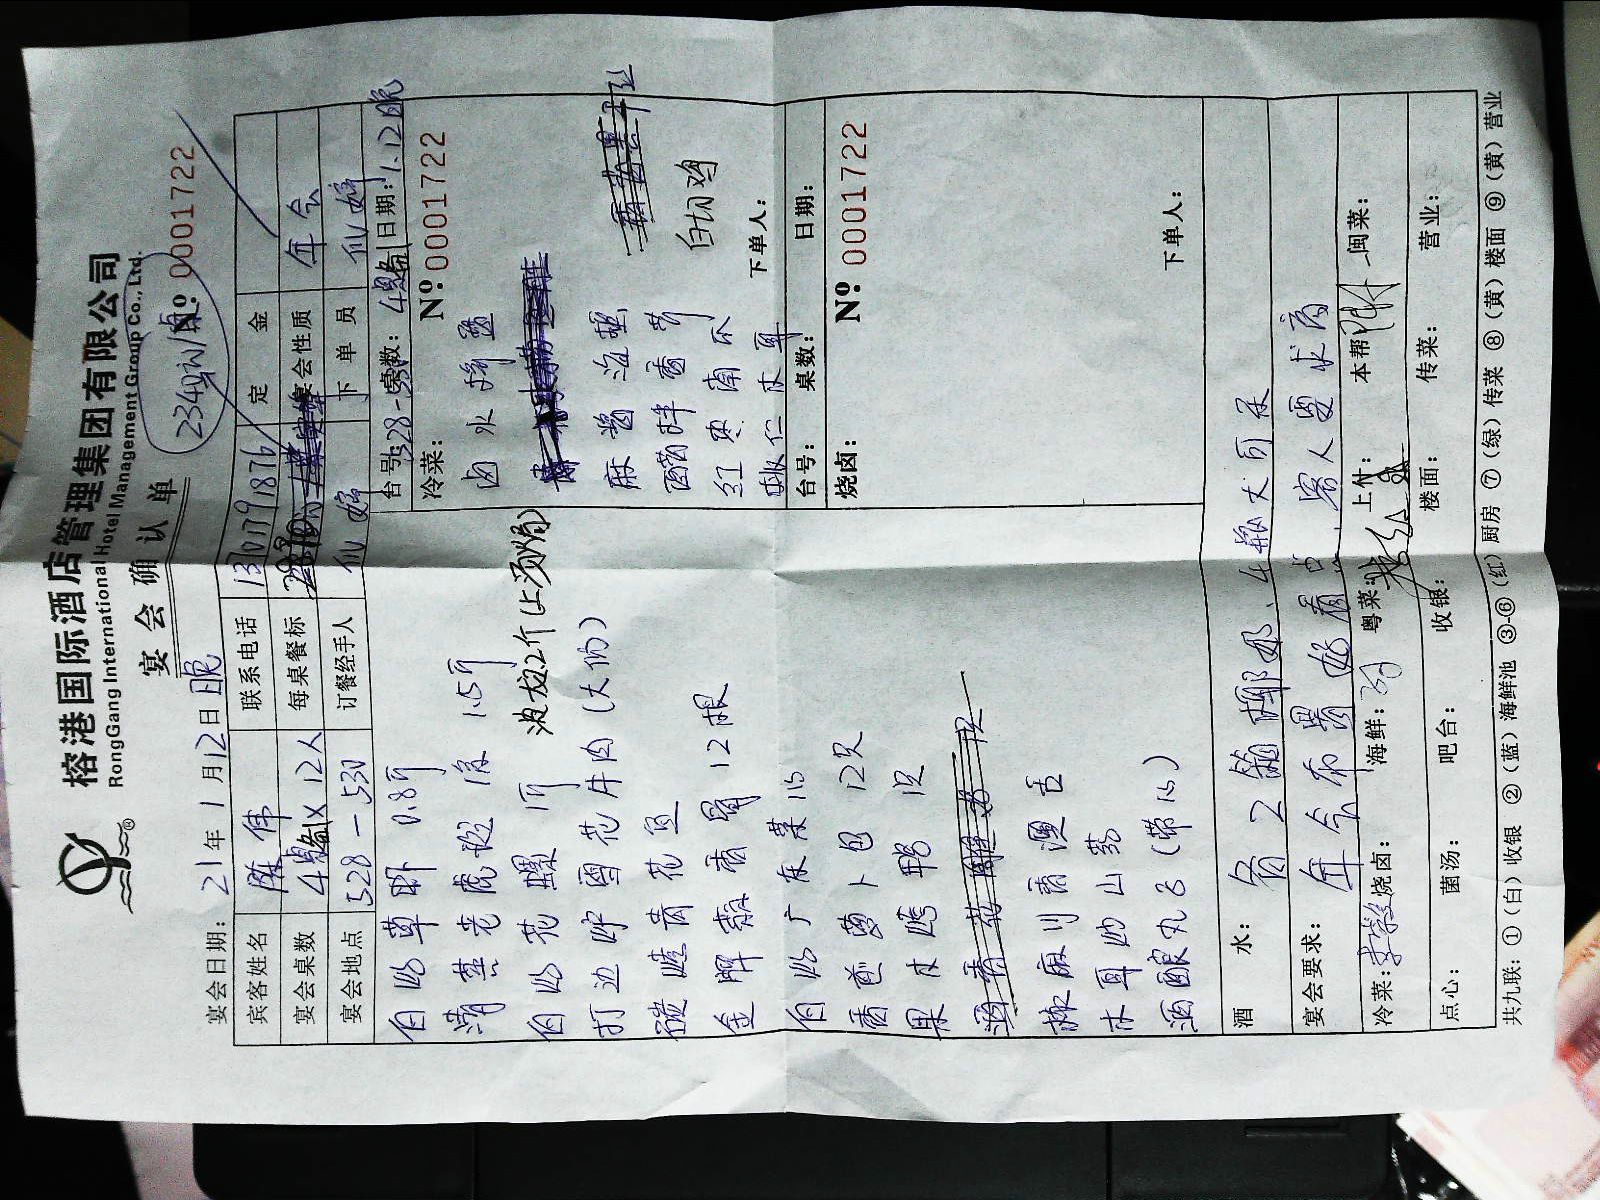 榕港国际酒店管理集团有限公司
RongGang International Hotel Management Group Co., Ltd.
宴会确认单
2340元/桌
Nº 0001722
宴会日期：21年1月12日晚
宾客姓名 陈伟 联系电话 13017191876 定金
宴会桌数 4备 X 12人 每桌餐标 宴会性质 年会
宴会地点 528-530 订餐经手人 下单员
白灼草虾 0.8斤
清蒸老虎斑 1条 1.5斤
白灼花螺 1斤 波龙2个(上汤焗)
打边炉雪花牛肉(大份)
花鱼
金牌蒜香骨 12根
白灼广东菜心
香煎萝卜包 12只
果木烤鸭 1只
麻川香
木耳炒山药
酒酿丸子(带心)
台号：328-530 桌数：4备1 日期：1.12晚
冷菜：
Nº 0001722
卤水拼盘
麻酱海蜇
红枣南瓜
桃仁木耳
白切鸡
下单人：
台号： 桌数： 日期：
烧卤：
Nº 0001722
下单人：
酒水：各2箱椰奶、4瓶大可乐
宴会要求：年会布置好看点，客人要求高
冷菜： 烧卤： 海鲜： 粤菜： 上什： 本帮： 闽菜：
点心： 菌汤： 吧台： 收银： 楼面： 传菜： 营业：
共九联：①（白）收银 ②（蓝）海鲜池 ③-⑥（红）厨房 ⑦（绿）传菜 ⑧（黄）楼面 ⑨（黄）营业